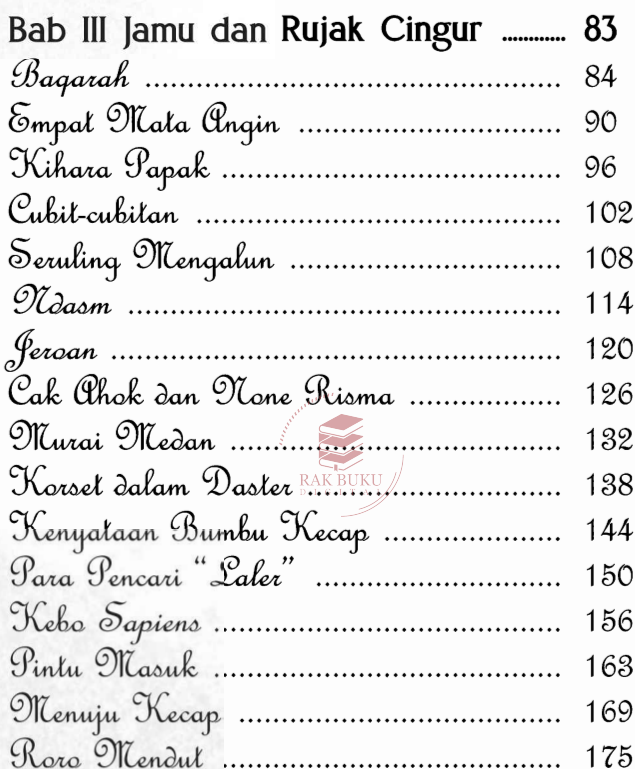 Bab III Jamu dan Rujak Cingur ............ 83
Baqarah ...................................................... 84
Empat Mata Angin .................................. 90
Kihara Papak ............................................ 96
Cubit-cubitan ............................................... 102
Seruling Mengalun ................................... 108
Ndasm ........................................................ 114
Jeroan .......................................................... 120
Cak Ahok dan None Risma ................... 126
Murai Medan ........................................... 132
RAK BUKU
DIGITAL
Korset dalam Daster ................................. 138
Kenyataan Bumbu Kecap ....................... 144
Para Pencari “Laler” ................................ 150
Kebo Sapiens ............................................. 156
Pintu Masuk ............................................. 163
Menuju Kecap .......................................... 169
Roro Mendut ............................................ 175